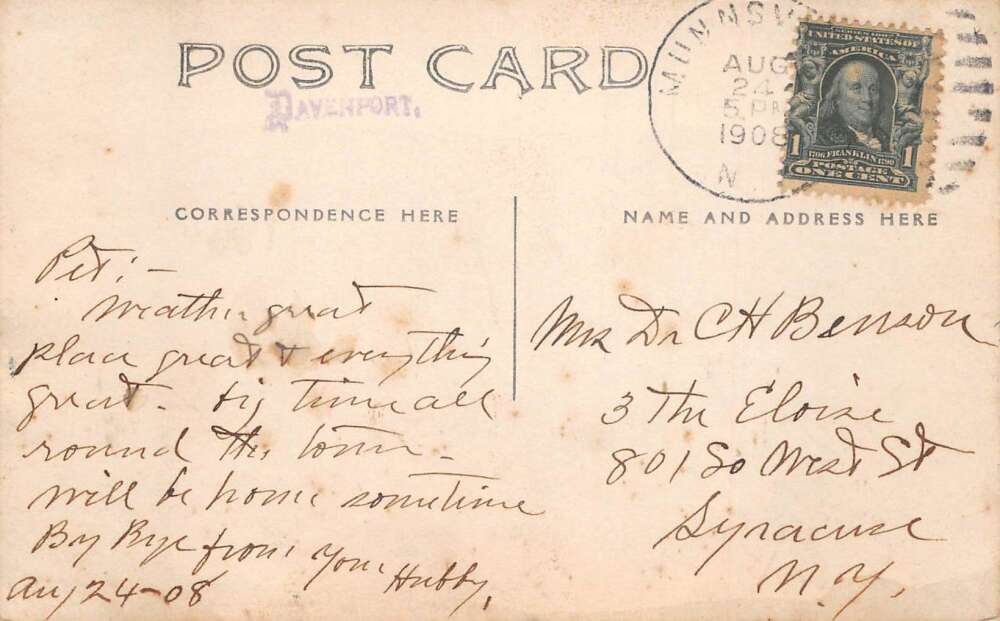 POST CARD
DAVENPORT.
MUNNSV
AUG
24
5 PM
1908
N
SERIES 1902
UNITED STATES OF
AMERICA
1 1
1706 FRANKLIN 1790
POSTAGE
ONE CENT
CORRESPONDENCE HERE
Pet:-
Weather great
place great & everything
great. big time all
round the town -
will be home sometime
By Bye from your
Hubby,
Aug 24-08
NAME AND ADDRESS HERE
Mrs Dr CH Benson
3 The Eloise
801 So West St
Syracuse
N.Y.